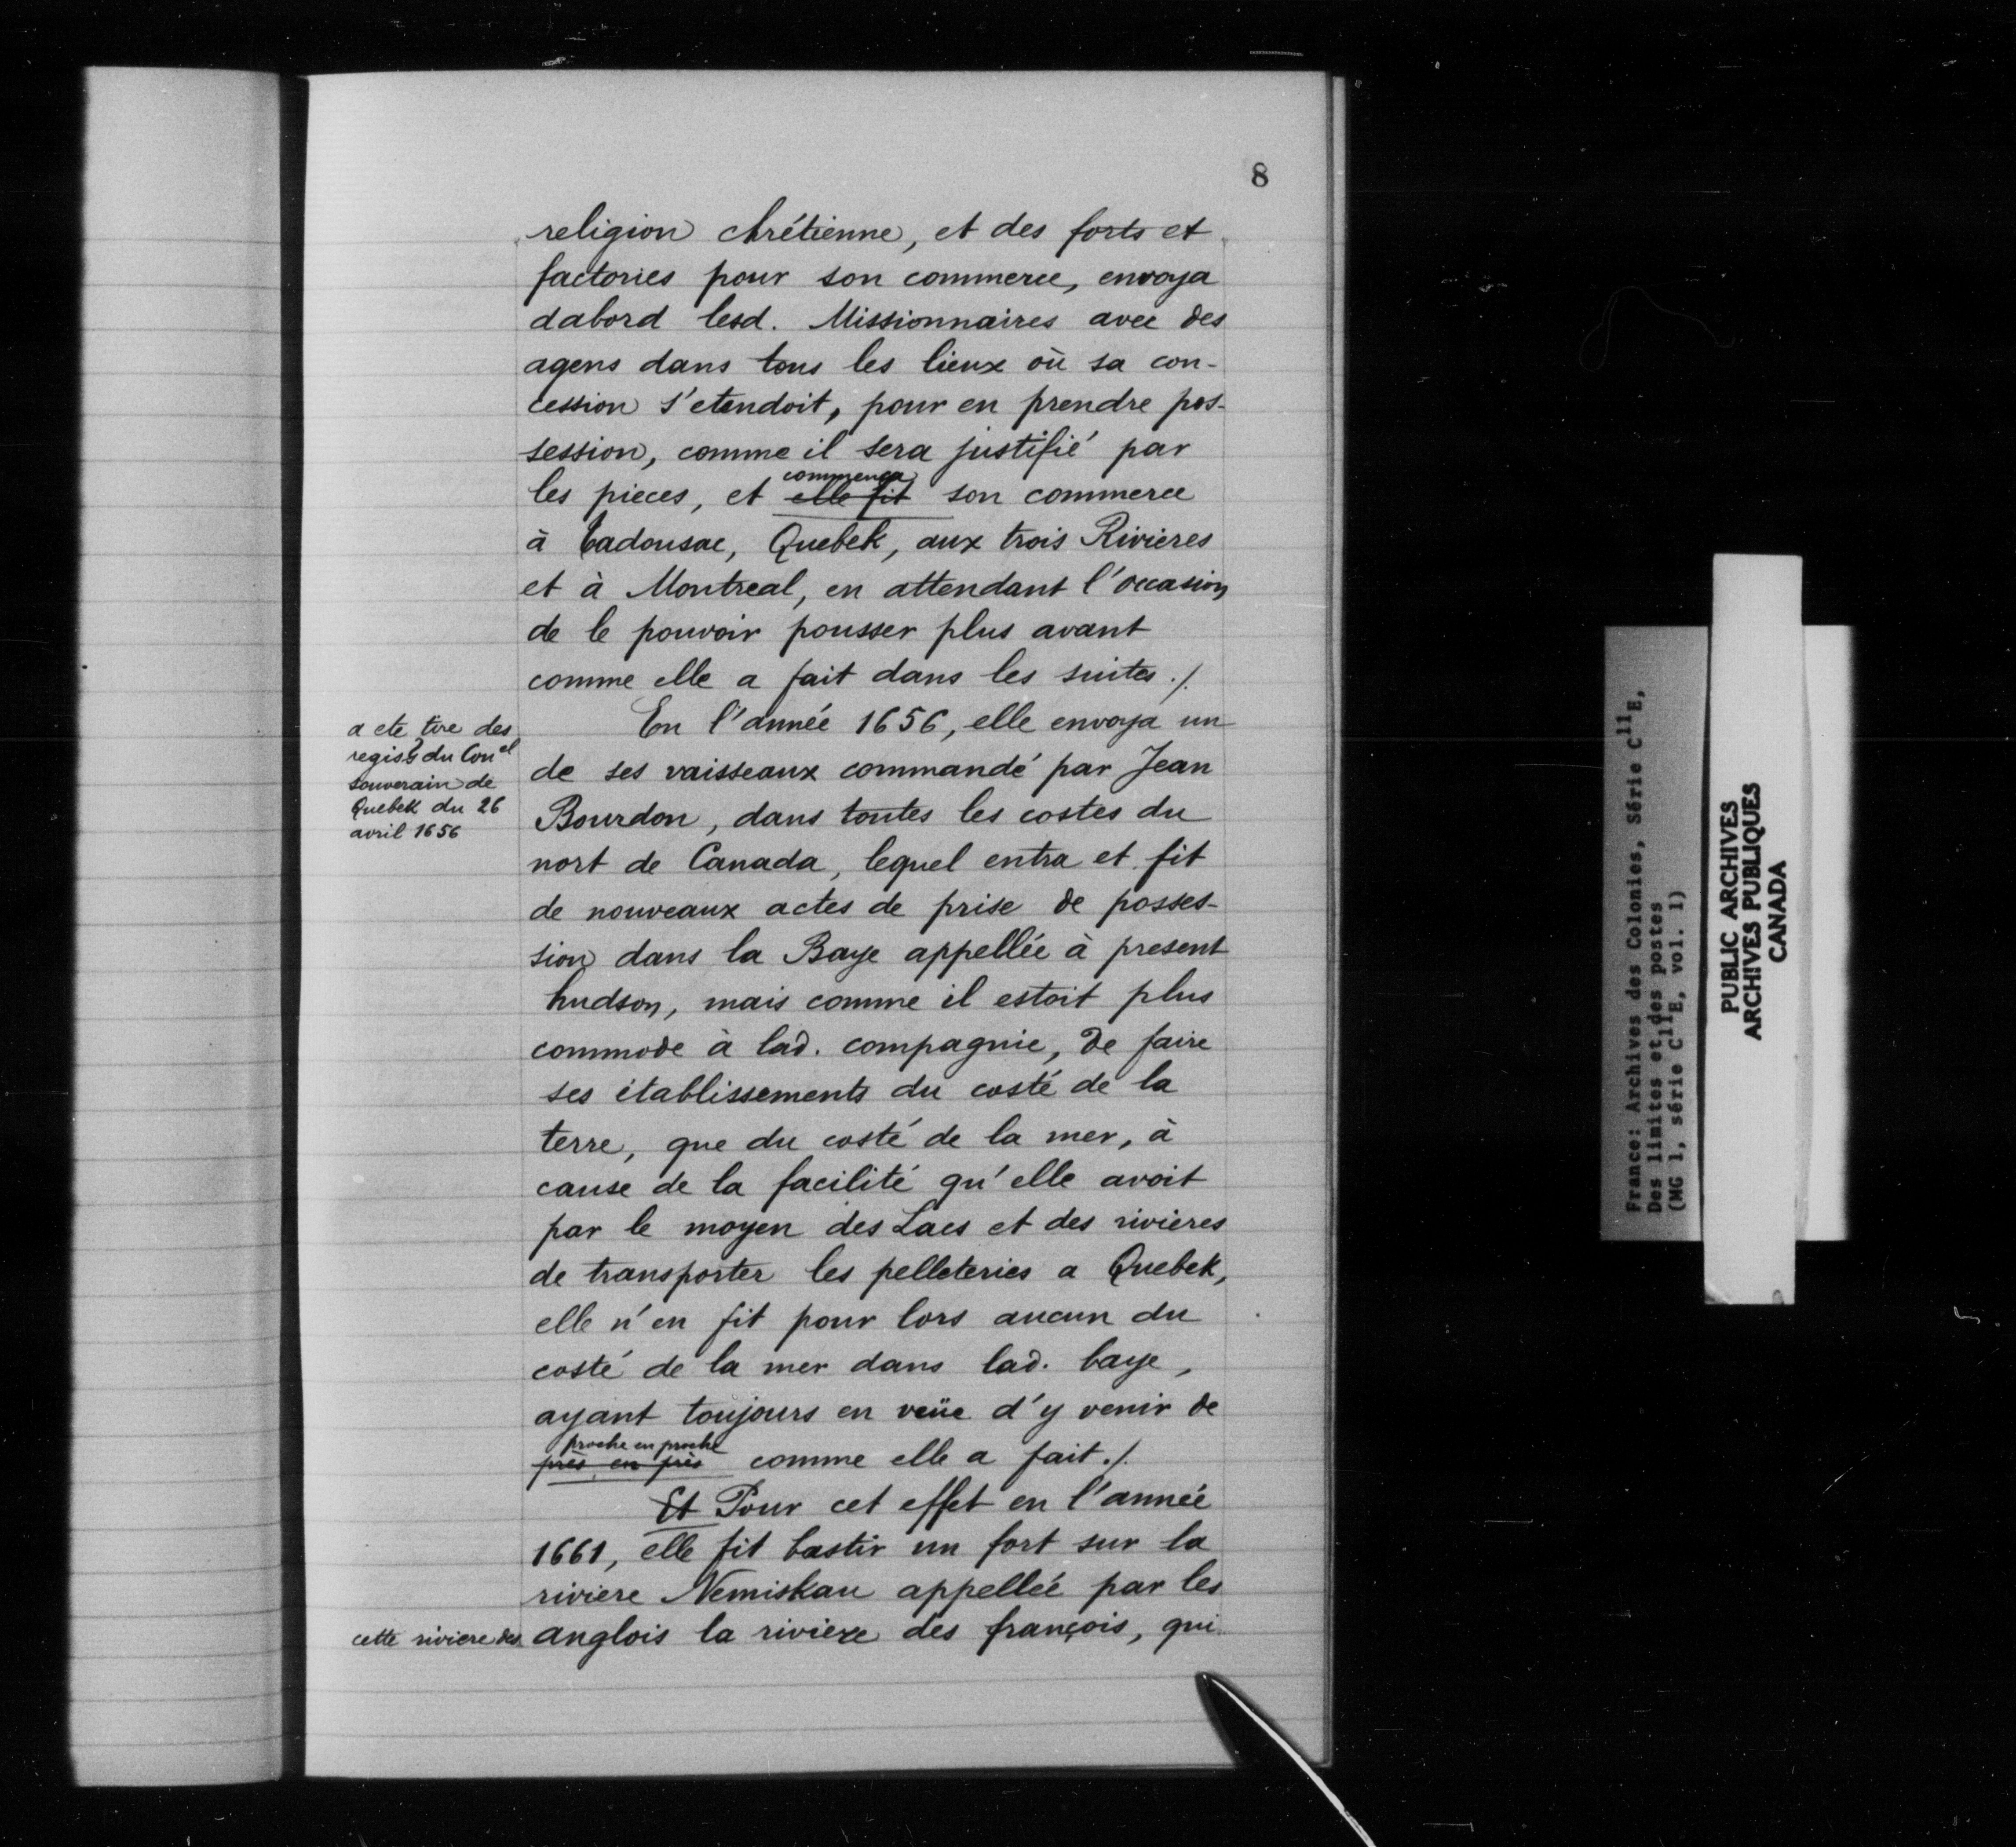 8
religion chrétienne, et des forts et
factories pour son commerce, envoya
dabord lesd. Missionnaires avec des
agens dans tous les lieux où sa con-
cession s'etendoit, pour en prendre pos-
session, comme il sera justifié par
commença
les pieces, et elle fit son commerce
à Tadousac, Quebek, aux trois Rivieres
et à Montreal, en attendant l'occasion
de le pouvoir pousser plus avant
comme elle a fait dans les suites ./.
En l'année 1656, elle envoya un
de ses vaisseaux commandé par Jean
Bourdon, dans toutes les costes du
nort de Canada, lequel entra et fit
de nouveaux actes de prise de posses-
sion dans la Baye appellée à present
hudson, mais comme il estoit plus
commode à lad. compagnie, de faire
ses établissements du costé de la
terre, que du costé de la mer, à
cause de la facilité qu'elle avoit
par le moyen des Lacs et des rivieres
de transporter les pelleteries a Quebek,
elle n'en fit pour lors aucun du
costé de la mer dans lad. baye,
ayant toujours en veüe d'y venir de
proche en proche
près en près comme elle a fait ./.
Et Pour cet effet en l'année
1661, elle fit bastir un fort sur la
riviere Nemiskau appellée par les
anglois la riviere des françois, qui
a ete tire des
regis du Con<sup>el</sup>
souverain de
Quebek du 26
avril 1656
cette riviere des
France: Archives des Colonies, Série C11E,
Des limites et des postes
(MG 1, série C11E, vol. 1)
PUBLIC ARCHIVES
ARCHIVES PUBLIQUES
CANADA